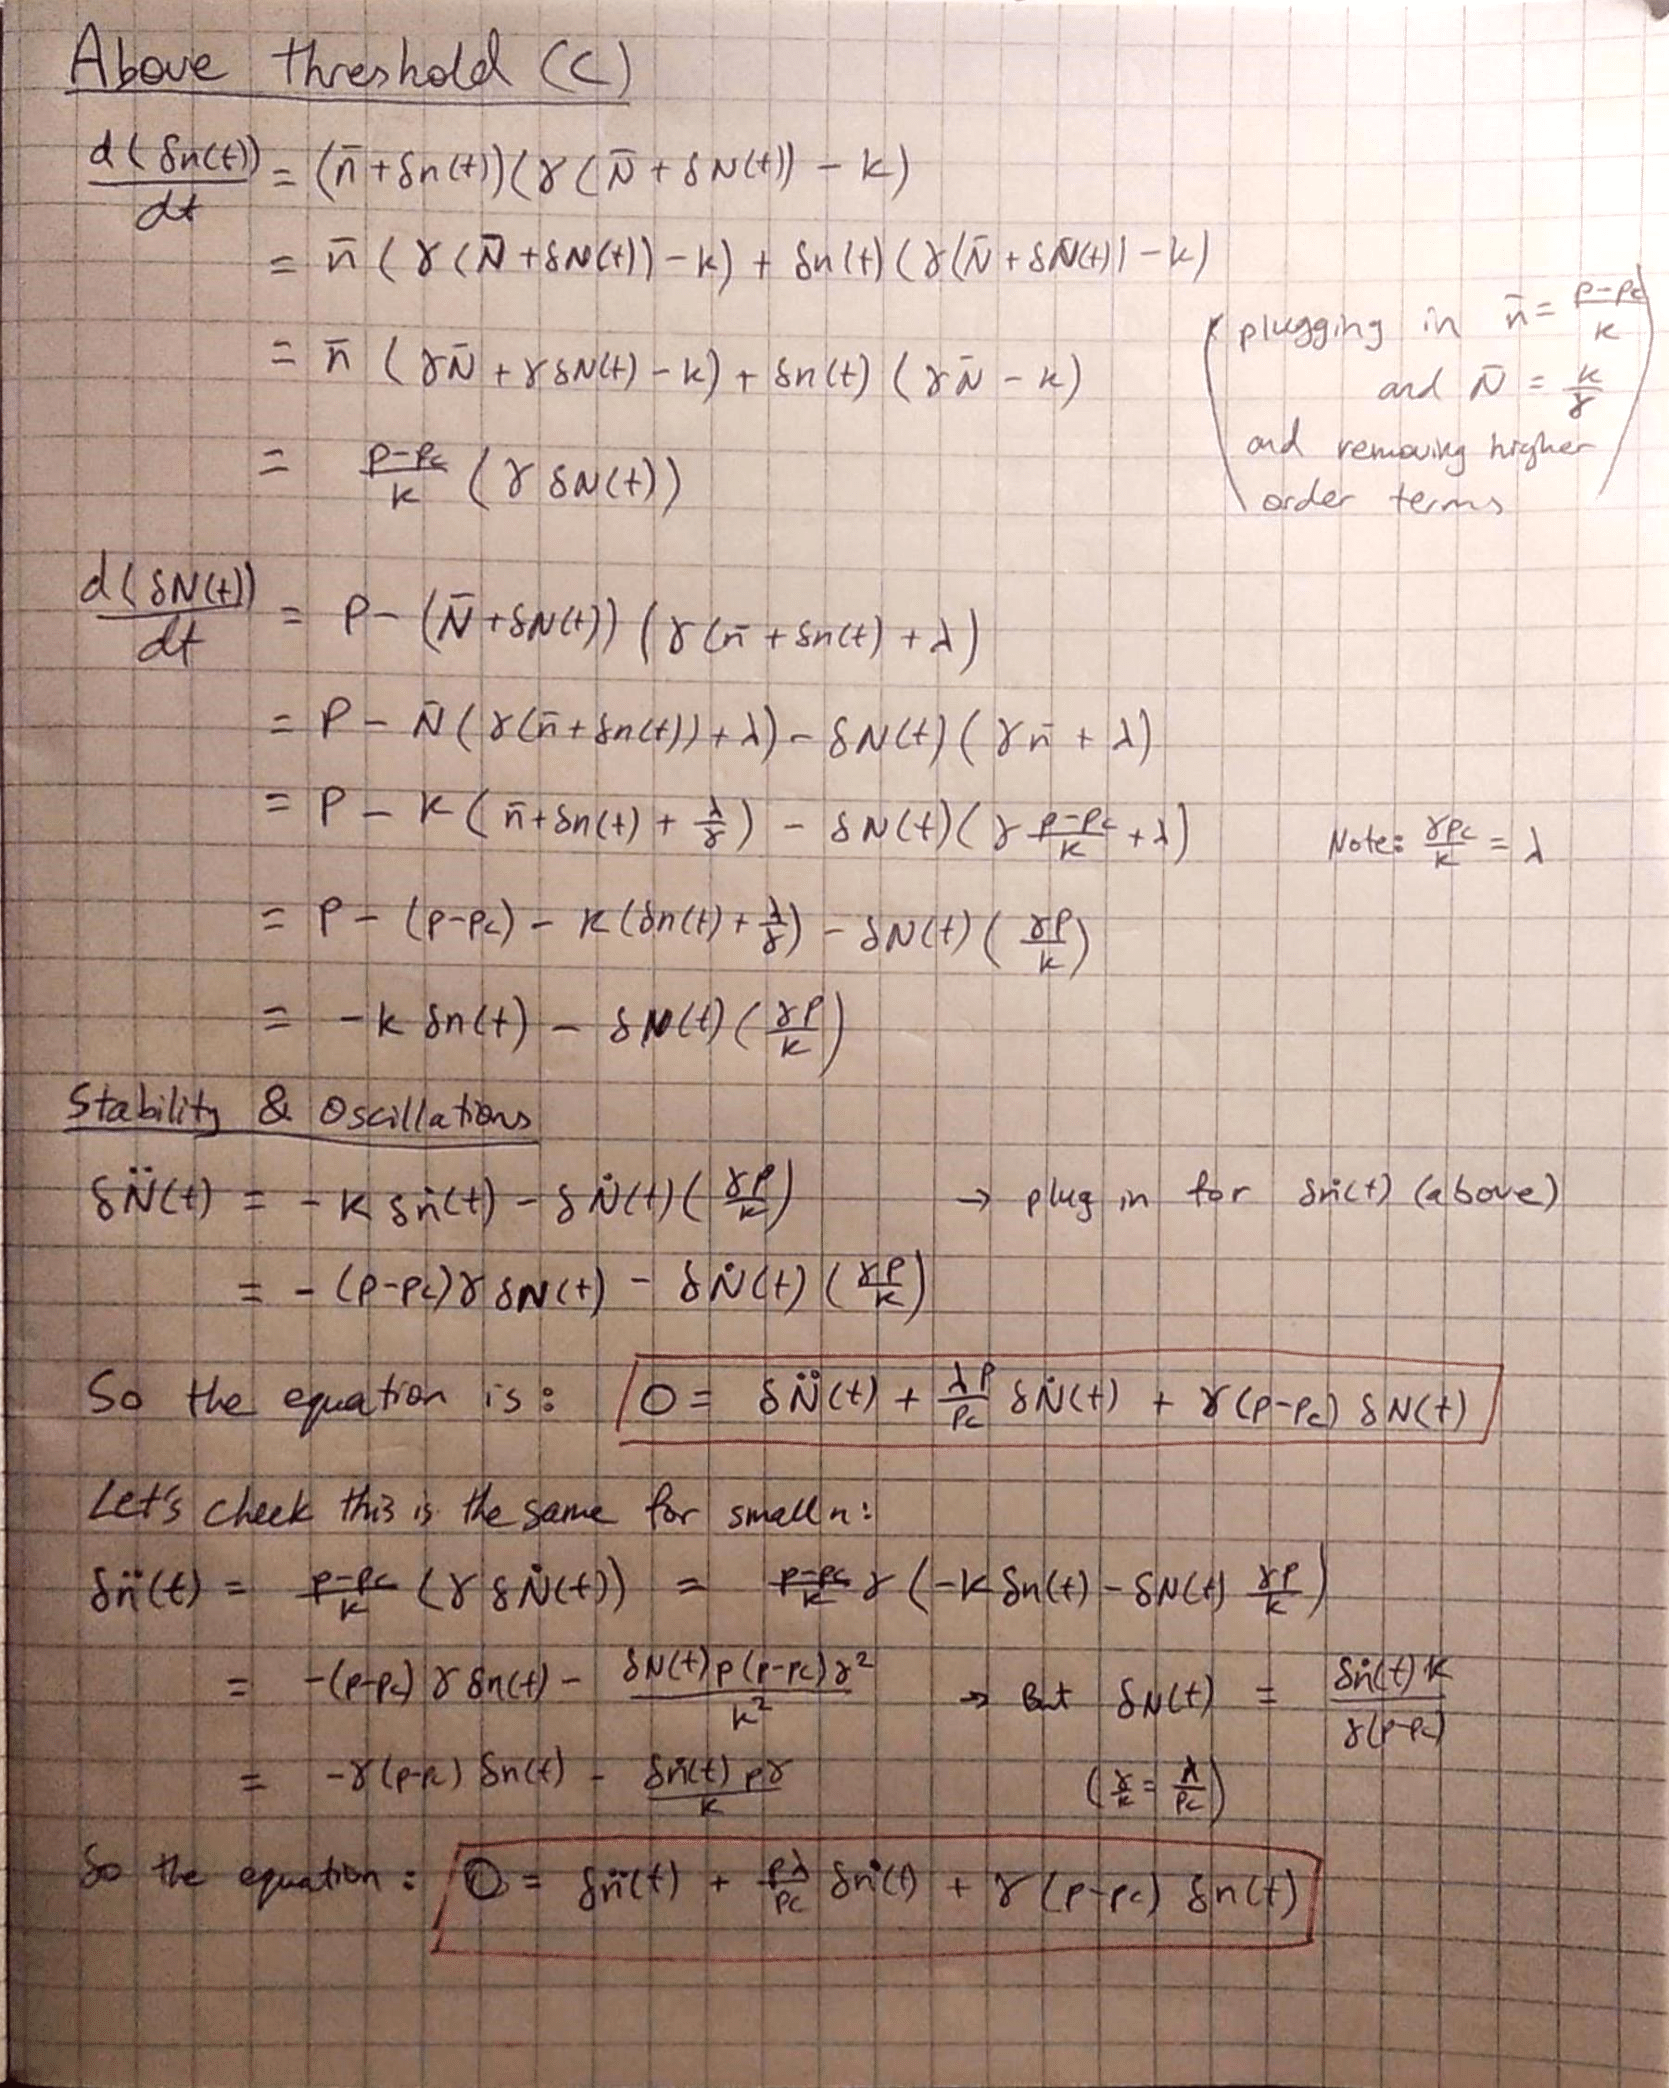 Above threshold (C)
d(δn(t))/dt = (n̄ + δn(t))(γ(N̄ + δN(t)) - k)
= n̄ (γ(N̄ + δN(t)) - k) + δn(t) (γ(N̄ + δN̄(t)) - k)
= n̄ (γN̄ + γδN(t) - k) + δn(t) (γN̄ - k)
= (p-pc)/k (γ δN(t))
(plugging in n̄ = (p-pc)/k
and N̄ = k/γ
and removing higher
order terms)
d(δN(t))/dt = P - (N̄ + δN(t)) (γ(n̄ + δn(t) + λ)
= P - N̄ (γ(n̄ + δn(t)) + λ) - δN(t) (γn̄ + λ)
= P - k (n̄ + δn(t) + λ/γ) - δN(t) (γ (p-pc)/k + λ)
Note: γpc/k = λ
= P - (p-pc) - k (δn(t) + λ/γ) - δN(t) (γP/k)
= -k δn(t) - δN(t) (γP/k)
Stability & Oscillations
δN̈(t) = -k δṅ(t) - δṄ(t) (γP/k) → plug in for δṅ(t) (above)
= -(p-pc)γ δN(t) - δṄ(t) (γP/k)
So the equation is: 0 = δN̈(t) + λP/Pc δṄ(t) + γ(p-pc) δN(t)
Let's check this is the same for small n:
δn̈(t) = (p-pc)/k (γ δṄ(t)) = (p-pc)/k γ (-k δn(t) - δN(t) γP/k)
= -(p-pc) γ δn(t) - δN(t)p(p-pc)γ²/k² → But δN(t) = δṅ(t)k/γ(p-pc)
= -γ(p-pc) δn(t) - δṅ(t)pγ/k (γ/k = λ/pc)
So the equation: 0 = δn̈(t) + pλ/pc δṅ(t) + γ(p-pc) δn(t)